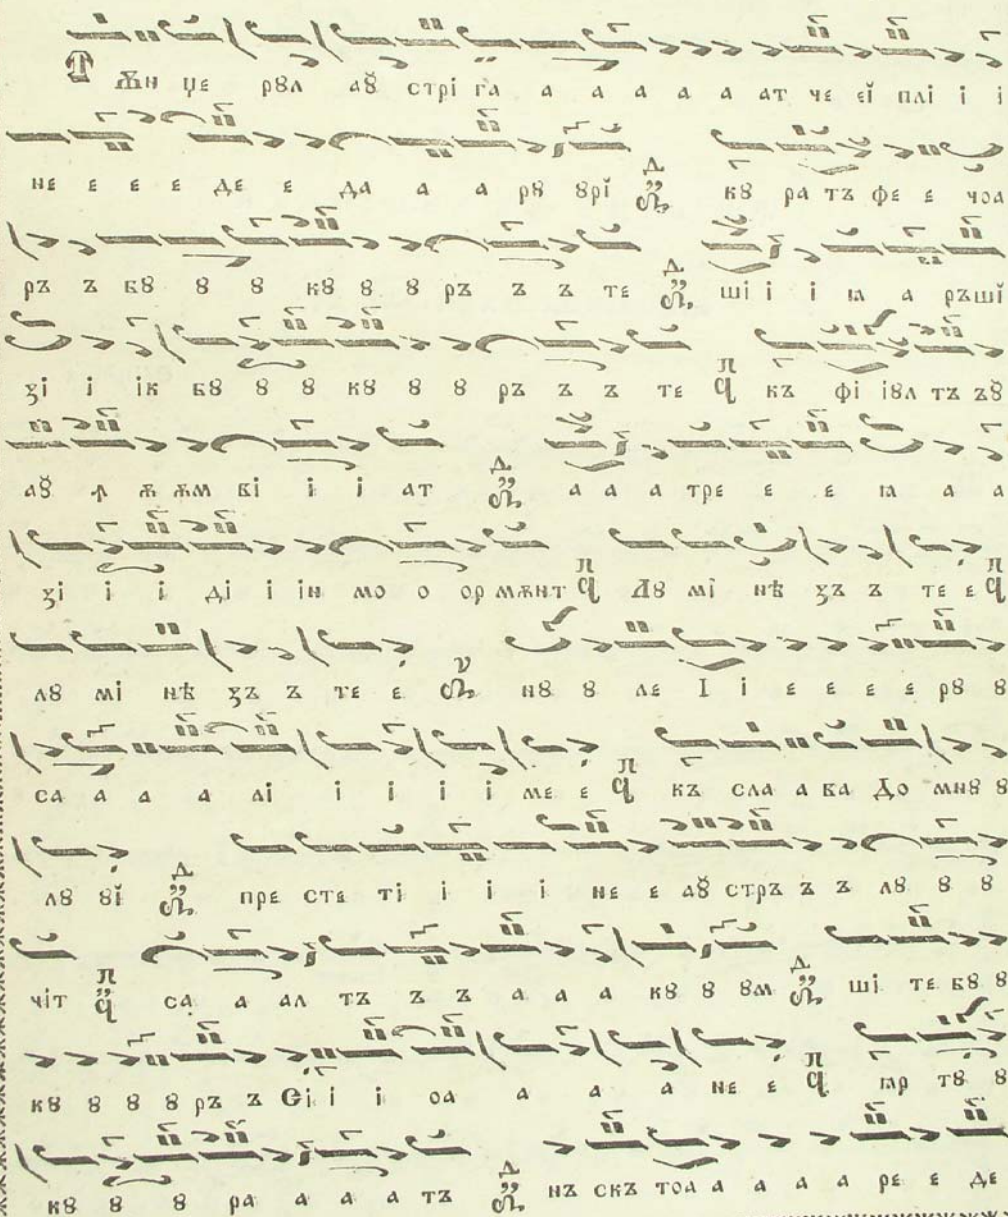 Ꙟ Ѫн џе рꙋл аꙋ̆ стрі га а а а а а ат че еĭ плі і і
не е е е де е да а а рꙋ ꙋрĭ кꙋ ра тъ фе е чоа
ръ ъ бꙋ ꙋ ꙋ кꙋ ꙋ ꙋ ръ ъ ъ те ші і і ꙗ а ръшĭ
ꙁі і ік бꙋ ꙋ ꙋ кꙋ ꙋ ꙋ ръ ъ ъ те къ фі іꙋл тъ ъꙋ̆
аꙋ̆ ꙟ ѫ ѫм ві і і ат а а а тре е е ꙗ а а
ꙁі і і ді і ін мо о ор мѫнт Лꙋ мі нѣ ꙁъ ъ те е
лꙋ мі нѣ ꙁъ ъ те е нꙋ ꙋ ле І і е е е е рꙋ ꙋ
са а а а лі і і і і ме е къ сла а ва До мнꙋ ꙋ
лꙋ ꙋĭ пре сте ті і і і не е аꙋ̆ стръ ъ ъ лꙋ ꙋ ꙋ
чіт са а ал тъ ъ ъ а а а кꙋ ꙋ ꙋм ші те бꙋ ꙋ
кꙋ ꙋ ꙋ ꙋ ръ ъ Сі і і оа а а а не е ꙗр тꙋ ꙋ
кꙋ ꙋ ꙋ ра а а а тъ нъ скъ тоа а а а а ре е де